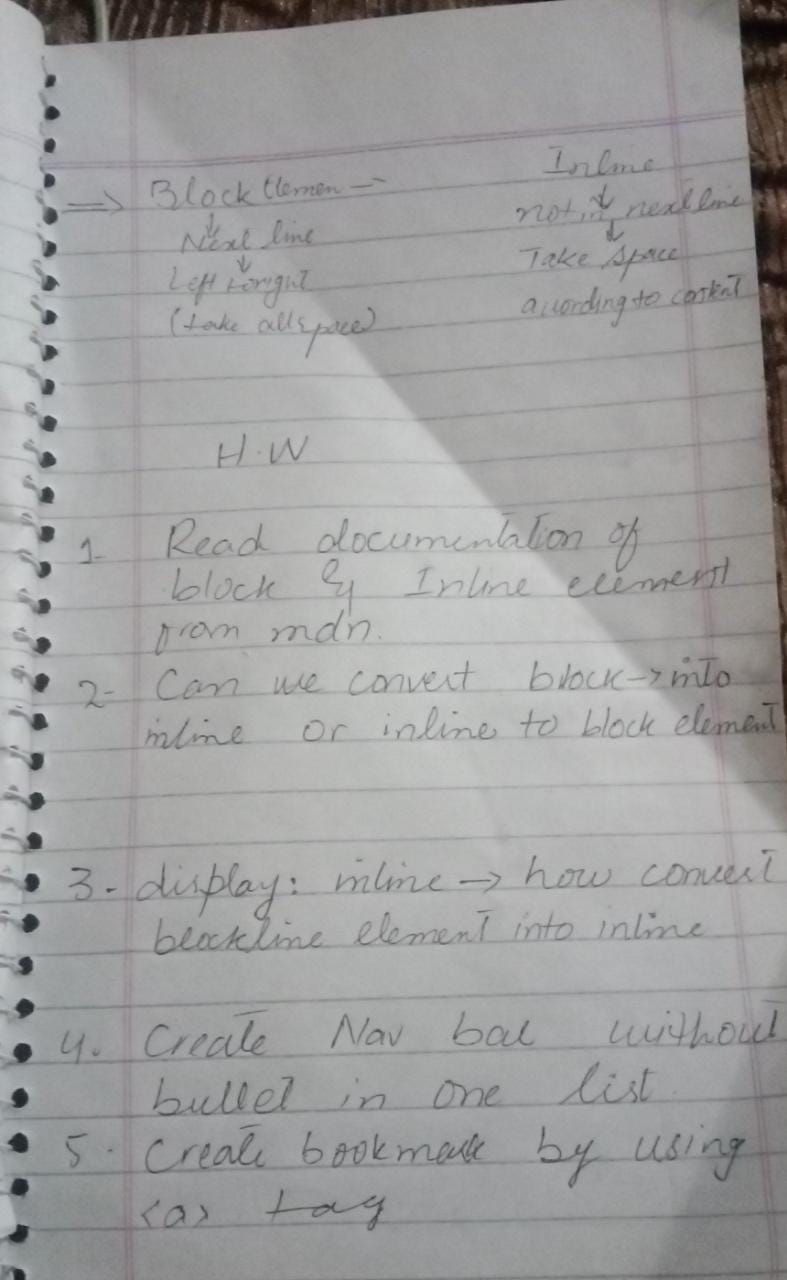 ⇒ Block Elemen →
↓
Next line
↓
Left to right
(take all space)
Inline
↓
not in next line
↓
Take Space
according to content
H.W
1- Read documentation of
block & Inline element
from mdn.
2- Can we convert block → into
inline or inline to block element
3- display: inline → how convert
blockline element into inline
4. Create Nav bar without
bullet in one list
5. Create bookmark by using
<a> tag